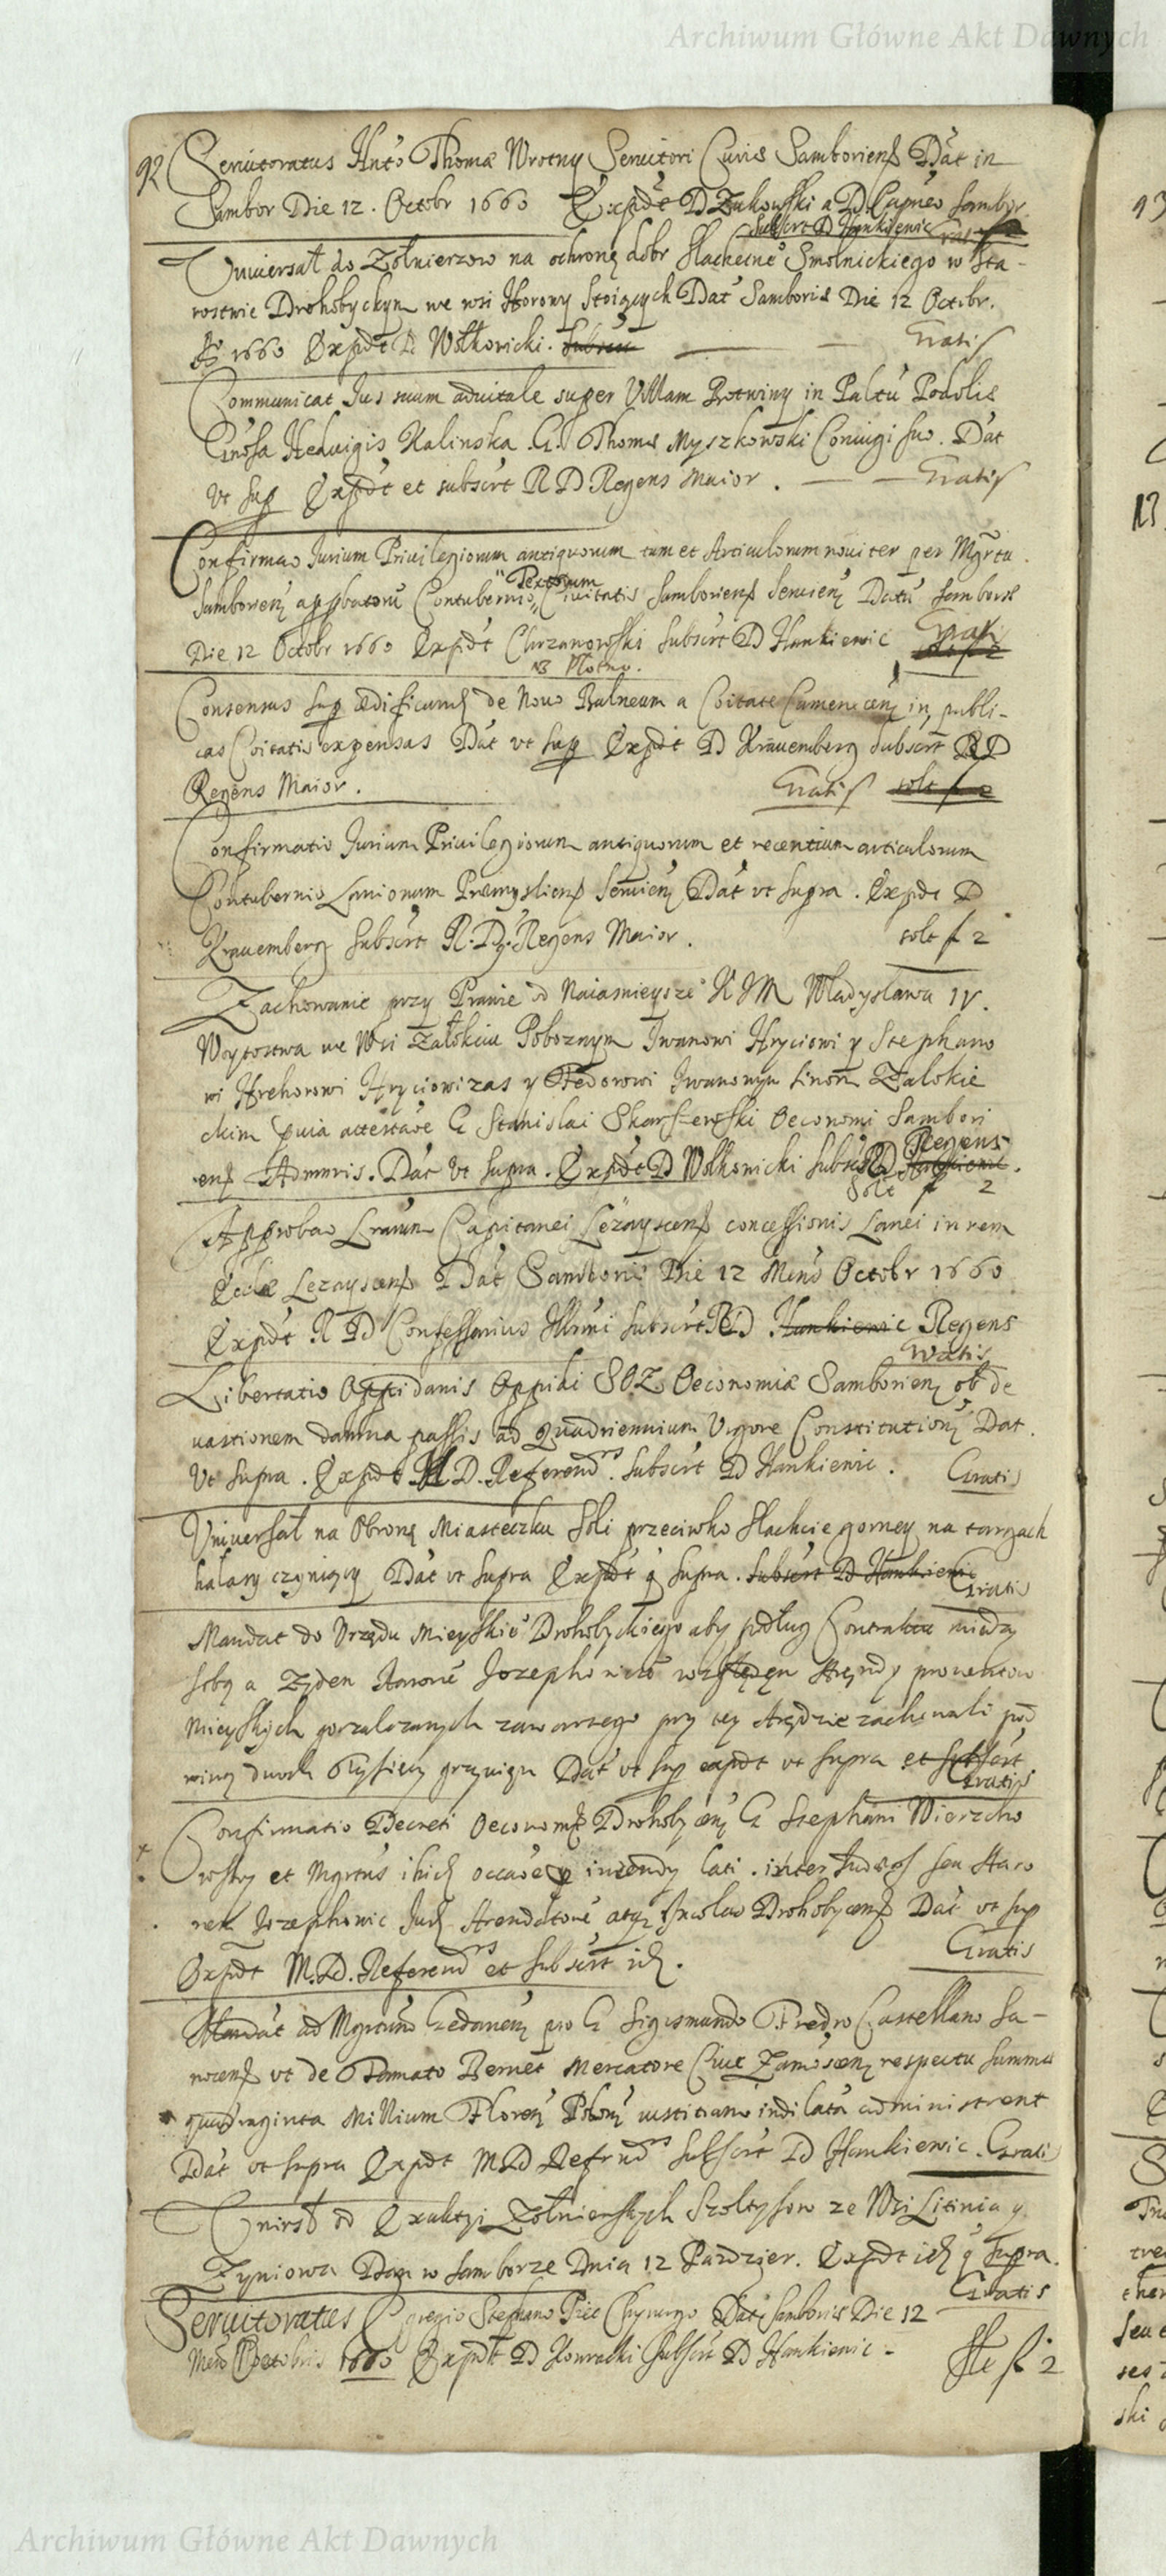 Archiwum Główne Akt Dawnych
92 Seruitoratus Hnto Thomæ Wrotny Seruitori Curiæ Samboriens Dat in
Sambor Die 12. Octobr 1660 Expdt D Zukowski a D Sambor
Subscrt D Hankiewic
Vniuersał do Zołnierzow na ochronę dobr Slachetne Smolnickiego w Sta-
rostwie Drohobyckym we wsi Horowy Stoiących Dat Samboriæ Die 12 Octobr.
Ao 1660 Expdt D Wołkowicki. Subscrt Gratis
Communicat Jus suum aduitale super Villam Protwiny in Paltu Podoliæ
Gnosa Heduigis Kalinska G. Thomæ Myszkowski Coniugi suo. Dat
Vt sup Expdt et subscrt R D Regens Maior. Gratis
Confirmao Jurium Priuilegiorum antiquorum tum et Articulorum nouiter per Mgrtu
Samborien appbatoru Contubernio Ciuitatis Samboriens Seruien Datu Samboriæ
Textorum
Die 12 Octobr 1660 Expdt Chrzanowski Subscrt D Hankiewic Gratis
Consensus sup ædificand de Nouo Balneum a Coitate Camenecen in publi-
cas Coitatis expensas Dat vt sup Expdt D Krauemberg Subscrt R D
Regens Maior. Gratis solt f 2
Confirmatio Jurium Priuilegiorum antiquorum et recentium articulorum
Contubernio Lanionum Præmysliens Seruien Dat vt supra. Expdt D
Krauemberg Subscrt R. D. Regens Maior. solt f 2
Zachowanie przy Prawie od Naiasnieysze K J M Władysława IV.
Woytostwa we Wsi Załokciu Poboznym Iwanowi Hryciowi y Stephano
wi Hrehorowi Hryciowizas y Fedorowi Iwanowym Sinom Zalokie
ckim quia attestaoe G Stanislai Skarszewski Oeconomi Sambori
ens Admnris. Dat Vt supra. Expdt D Wolkonicki Subscrt R D Hankiewic.
Regens
Solt f 2
Approbao Lrarum Capitanei Lezayscens concessionis Lanei in rem
Eccliæ Lezayscens Dat Samboriæ Die 12 Mens Octobr 1660
Expdt R D Confessarius Illmi Subscrt R D Hankiewic Regens
Gratis
Libertatio Oppidanis Oppidi SOL Oeconomiæ Samborien ob de
uastionem damna passis ad Quadriennium Vigore Constitution Dat.
Vt supra. Expdt M. D. Referendrs. Subscrt D Hankiewic. Gratis
Vniuersał na Obronę Miasteczku Soli przeciwko Slachcie gorney na targach
hałasy czyniący Dat vt supra Expdt q supra. Subscrt D Hankiewic Gratis
Mandat do Vrzędu Mieyskie Drohobyckiego aby podług Contraktu między
sobą a Zyden Aarone Jozephowic względęm Aręndy prowentow
Mieyskych gorzalczanych zawartego przy tey Arędzie zachowali pod
winą dwoch Tysięcy grzywien Dat vt sup expdt vt supra et Subscrt
Gratis
Confirmatio Decreti Oeconom Drohobycen G Stephani Wierzcho
wsky et Mgrtus ibid occaoe incendy lati inter Judæos seu Haro
nem Jozephowic Jud Arendatore atq Incolas Drohobycens Dat vt sup
Expdt M. D. Referendrs et Subscrt id. Gratis
Mandat ad Mgrtum Gedanen pro G Sigismundo Fredro Castellano Sa-
nocens vt de Famato Bernet Mercatore Ciue Zamoscen respectu summæ
quadraginta Millium Floren Polon iustitiam indilata administrent
Dat vt supra Expdt M D Refrndrs Subscrt D Hankiewic. Gratis
Vnirsł od Exaktyi Zołnierskych Szołtysow ze Wsi Litinia y
Zyniowa Dan w Samborze Dnia 12 Pazdzier. Expdt id q supra.
Gratis
Seruitoratus Egregio Stephano Chyrurgo Dat Samboriæ Die 12
Mens Octobris 1660 Expdt D Kowalski Subscrt D Hankiewic - Slt f 2
Archiwum Główne Akt Dawnych